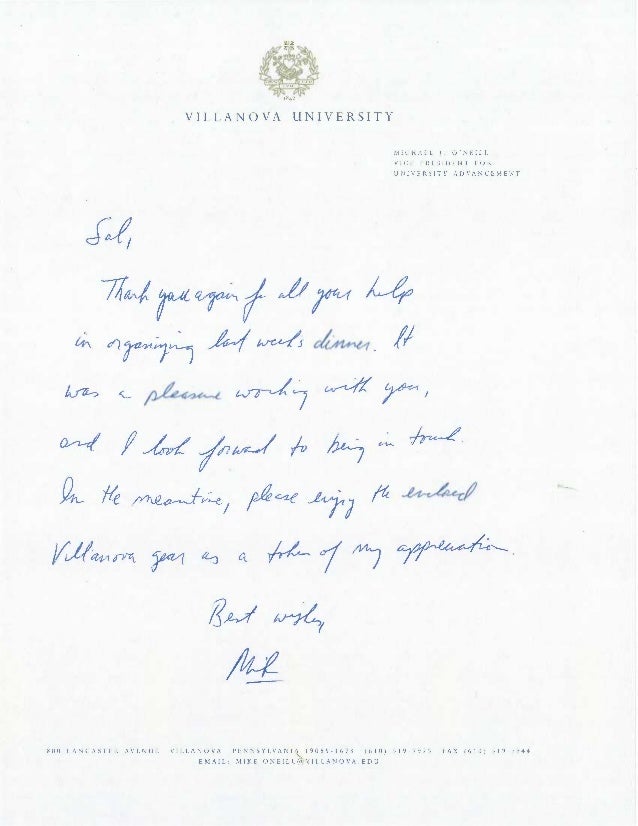 VILLANOVA UNIVERSITY
MICHAEL J. O'NEILL
VICE PRESIDENT FOR
UNIVERSITY ADVANCEMENT
Sal,
Thank you again for all your help
in organizing last week's dinner. It
was a pleasure working with you,
and I look forward to being in touch.
In the meantime, please enjoy the enclosed
Villanova gear as a token of my appreciation.
Best wishes,
Mike
800 LANCASTER AVENUE VILLANOVA PENNSYLVANIA (610) 519 FAX (610) 519
EMAIL: MIKE.ONEILL@VILLANOVA.EDU